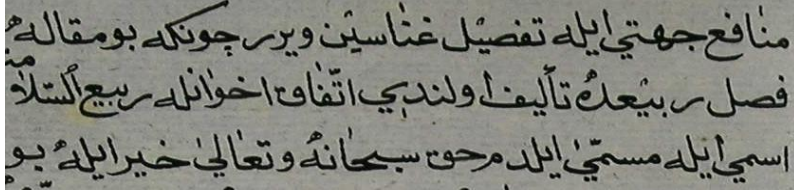 منافع جهتي ايله تفصيل غناسين ويرر چونكه بو مقاله
فصل ربيعده تأليف اولندي اتفاق اخوانله ربيع السلام
اسمي ايله مسمّى ايلدم حق سبحانه وتعالى خير ايله بو